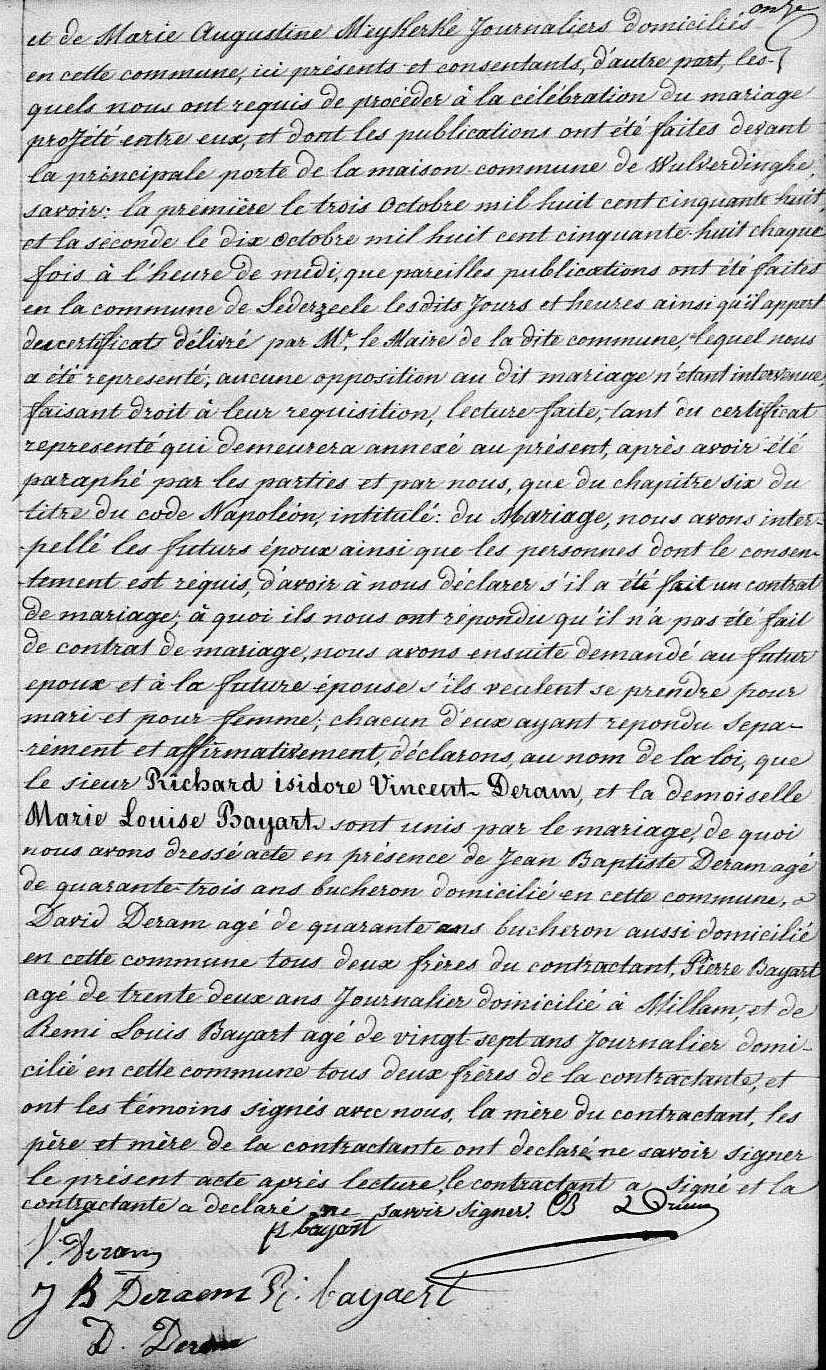 onze
et de Marie Augustine Meykerke Journaliers domiciliés
en cette commune, ici présents et consentants, d'autre part, les-
quels nous ont requis de procéder à la célébration du mariage
projété entre eux, et dont les publications ont été faites devant
la principale porte de la maison commune de Wulverdinghe,
savoir: la première le trois Octobre mil huit cent cinquante huit,
et la séconde le dix octobre mil huit cent cinquante-huit chaque
fois à l'heure de midi, que pareilles publications ont été faites
en la commune de Lederzeele lesdits Jours et heures ainsi qu'il appert
du certificat délivré par Mr. le Maire de la dite commune, lequel nous
a été representé; aucune opposition au dit mariage n'étant intervenue,
faisant droit à leur requisition, lecture faite, tant du certificat
representé qui demeurera annexé au présent, après avoir été
paraphé par les parties et par nous, que du chapitre six du
titre du code Napoléon, intitulé: du Mariage, nous avons inter-
pellé les futurs époux ainsi que les personnes dont le consen-
tement est réquis, d'avoir à nous déclarer s'il a été fait un contrat
de mariage; à quoi ils nous ont répondu qu'il n'a pas été fait
de contrat de mariage, nous avons ensuite demandé au futur
epoux et à la future épouse s'ils veulent se prendre pour
mari et pour femme; chacun d'eux ayant repondu sepa-
rément et affirmativement, déclarons, au nom de la loi, que
le sieur Richard isidore Vincent Deram, et la demoiselle
Marie Louise Bayart sont unis par le mariage, de quoi
nous avons dressé acte en présence de Jean Baptiste Deram agé
de quarante-trois ans bucheron domicilié en cette commune,
David Deram agé de quarante ans bucheron aussi domicilié
en cette commune tous deux frères du contractant, Pierre Bayart
agé de trente deux ans Journalier domicilié à Millam, et de
Remi Louis Bayart agé de vingt sept ans Journalier domi-
cilié en cette commune tous deux frères de la contractante, et
ont les témoins signés avec nous, la mère du contractant, les
père et mère de la contractante ont declaré ne savoir signer
le présent acte après lecture, le contractant a signé et la
contractante a declaré ne savoir signer.
V. Deram
p bayart
J B Deraem R. bayaert
D. Deram